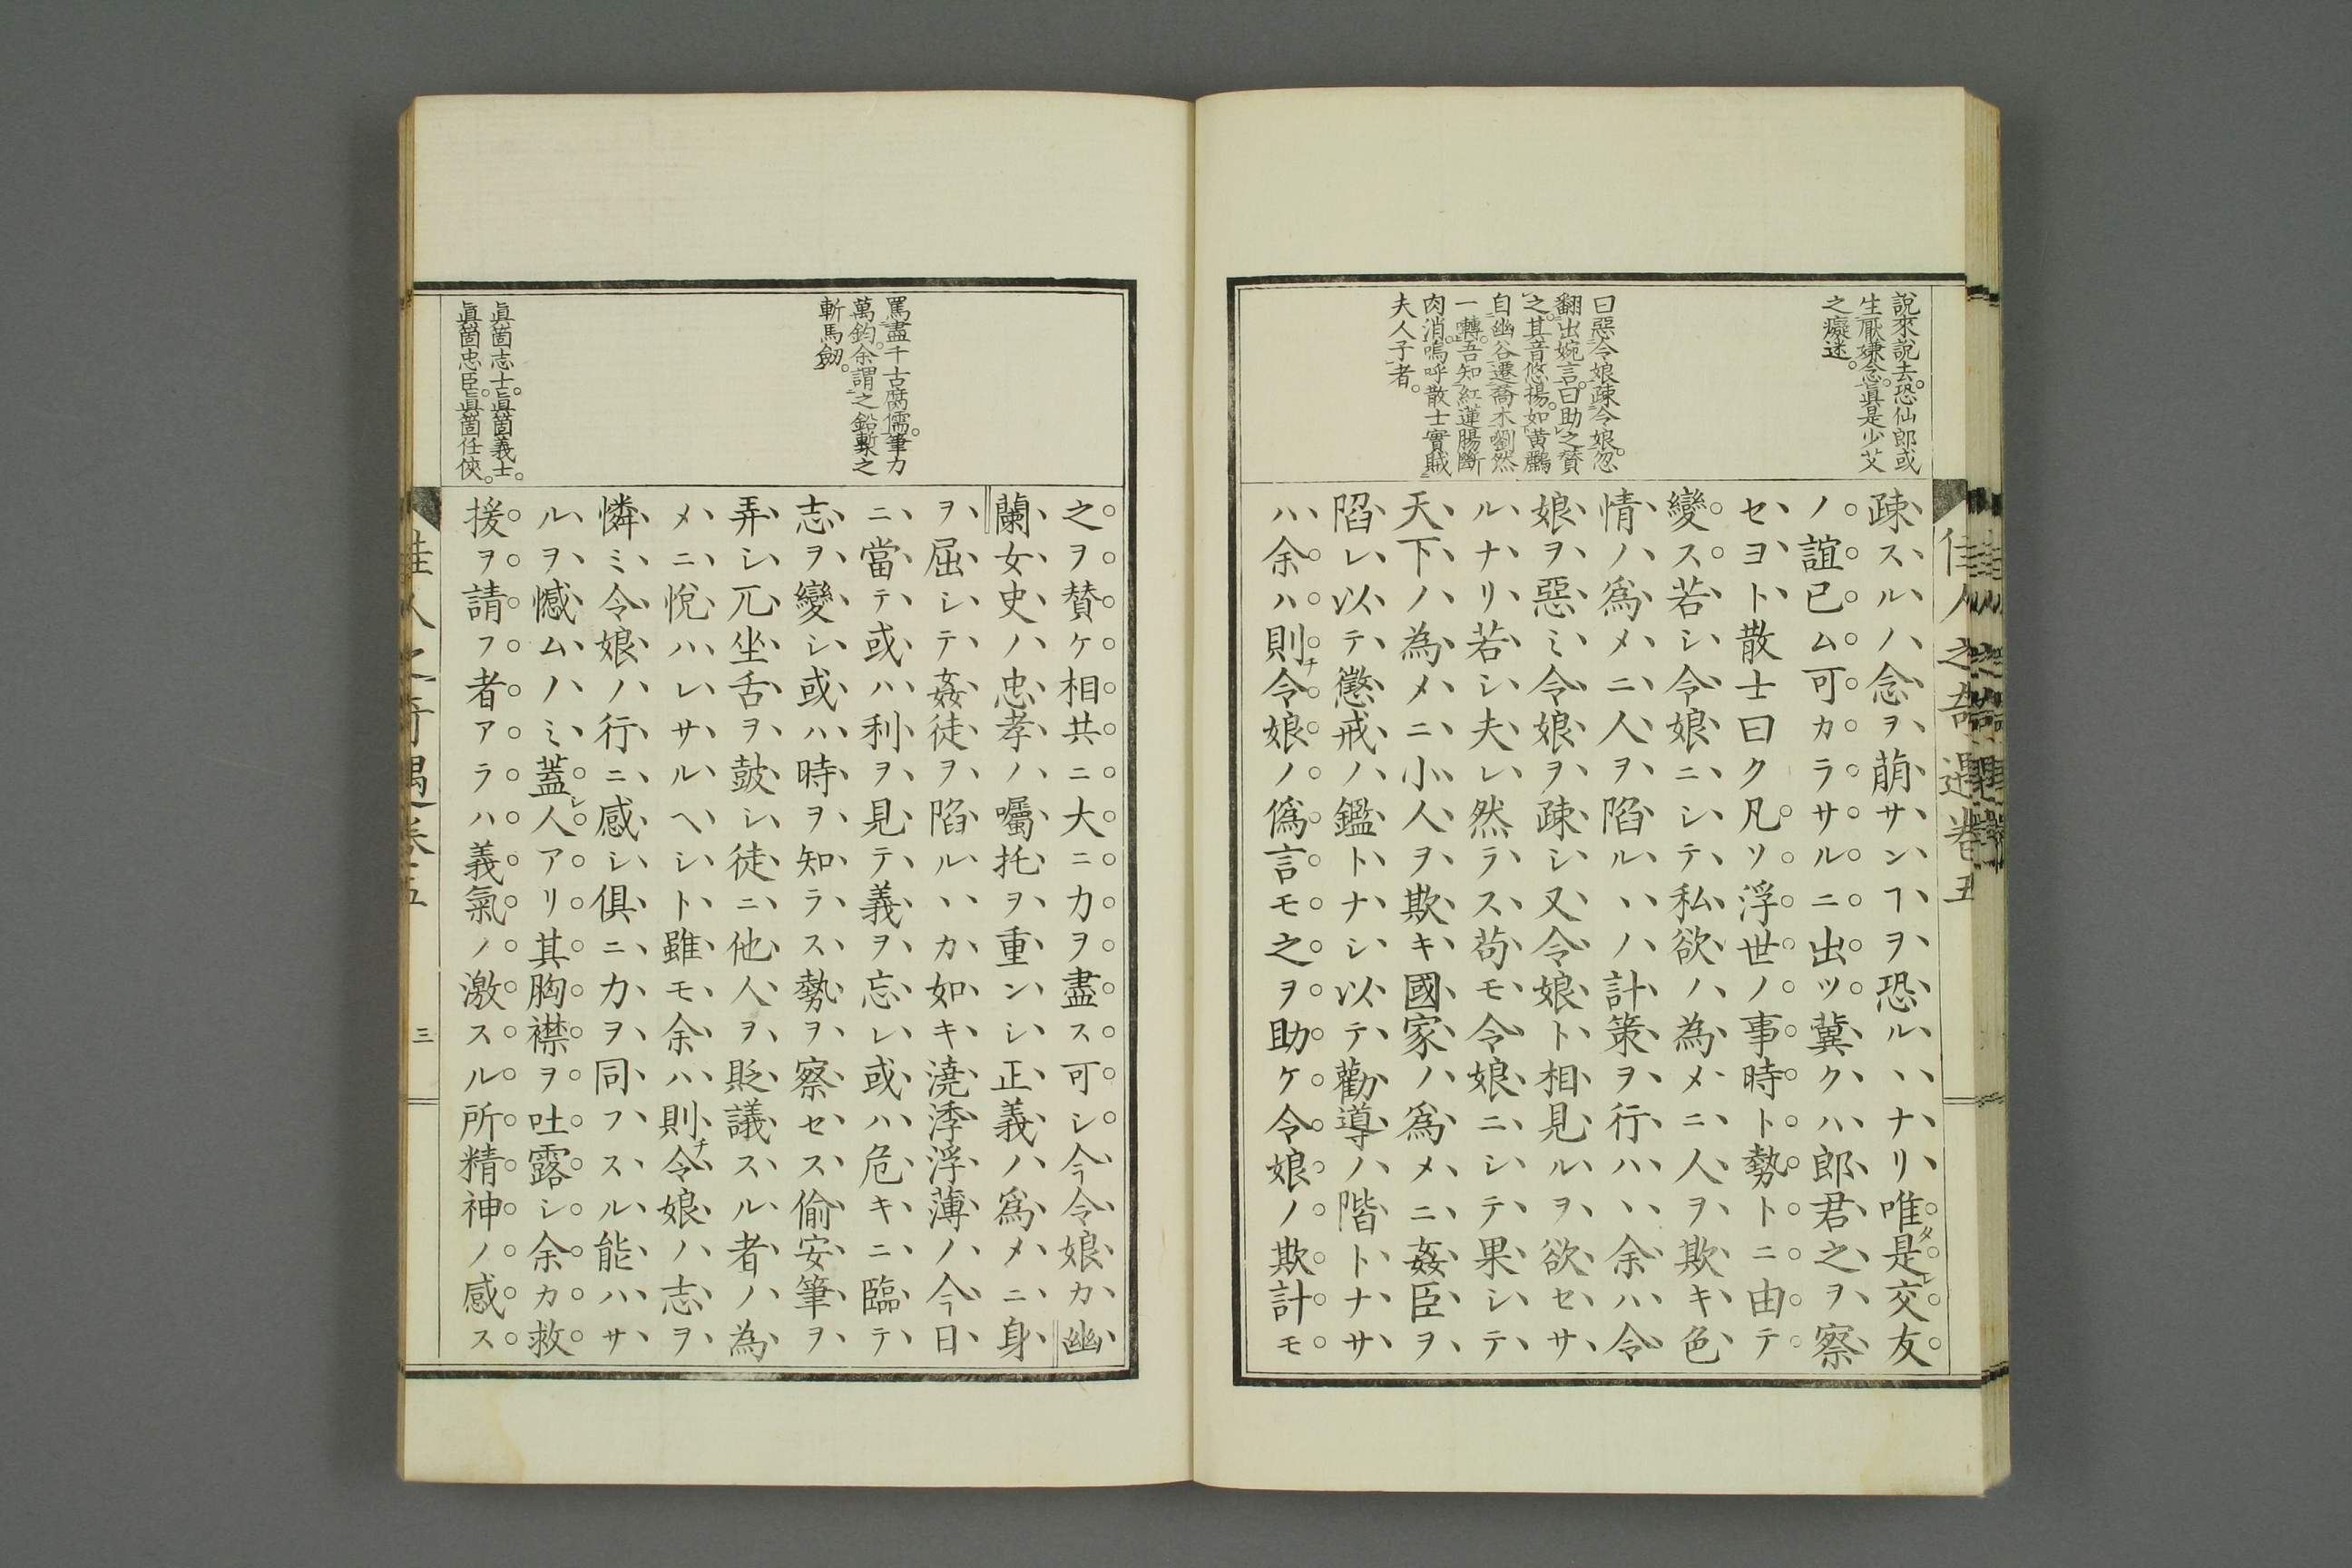 佳人之奇遇卷五
説來説去。恐仙郎或
生厭嫌念。眞是少艾
之癡迷。
曰惡令娘疎令娘。忽
翻出婉言。曰助之賛
之。其音悠揚。如黄鸝
自幽谷遷喬木。嚠然
一囀。吾知紅蓮腸斷
肉消。嗚呼散士實賊
夫人子者。
疎スルノ念ヲ萠サンヿヲ恐ルヽナリ唯是交友
ノ誼已ム可カラサルニ出ツ冀クハ郎君之ヲ察
セヨト散士曰ク凡ソ浮世ノ事時ト勢トニ由テ
變ス若シ令娘ニシテ私欲ノ為メニ人ヲ欺キ色
情ノ爲メニ人ヲ陷ルヽノ計策ヲ行ハヽ余ハ令
娘ヲ惡ミ令娘ヲ疎シ又令娘ト相見ルヲ欲セサ
ルナリ若シ夫レ然ラス苟モ令娘ニシテ果シテ
天下ノ為メニ小人ヲ欺キ國家ノ爲メニ姦臣ヲ
陷レ以テ懲戒ノ鑑トナシ以テ勸導ノ階トナサ
ハ余ハ則チ令娘ノ僞言モ之ヲ助ケ令娘ノ欺計モ
罵盡千古腐儒。筆力
萬鈞。余謂之鉛槧之
斬馬劒。
眞箇志士。眞箇義士。
眞箇忠臣。眞箇任俠。
之ヲ賛ケ相共ニ大ニ力ヲ盡ス可シ今令娘カ幽
蘭女史ノ忠孝ノ囑托ヲ重ンシ正義ノ爲メニ身
ヲ屈シテ姦徒ヲ陷ルヽカ如キ澆季浮薄ノ今日
ニ當テ或ハ利ヲ見テ義ヲ忘レ或ハ危キニ臨テ
志ヲ變シ或ハ時ヲ知ラス勢ヲ察セス偷安筆ヲ
弄シ兀坐舌ヲ鼓シ徒ニ他人ヲ貶議スル者ノ為
メニ悅ハレサルヘシト雖モ余ハ則チ令娘ノ志ヲ
憐ミ令娘ノ行ニ感シ俱ニ力ヲ同フスル能ハサ
ルヲ憾ムノミ蓋レ人アリ其胸襟ヲ吐露シ余カ救
援ヲ請フ者アラハ義氣ノ激スル所精神ノ感ス
佳人之奇遇卷五
三